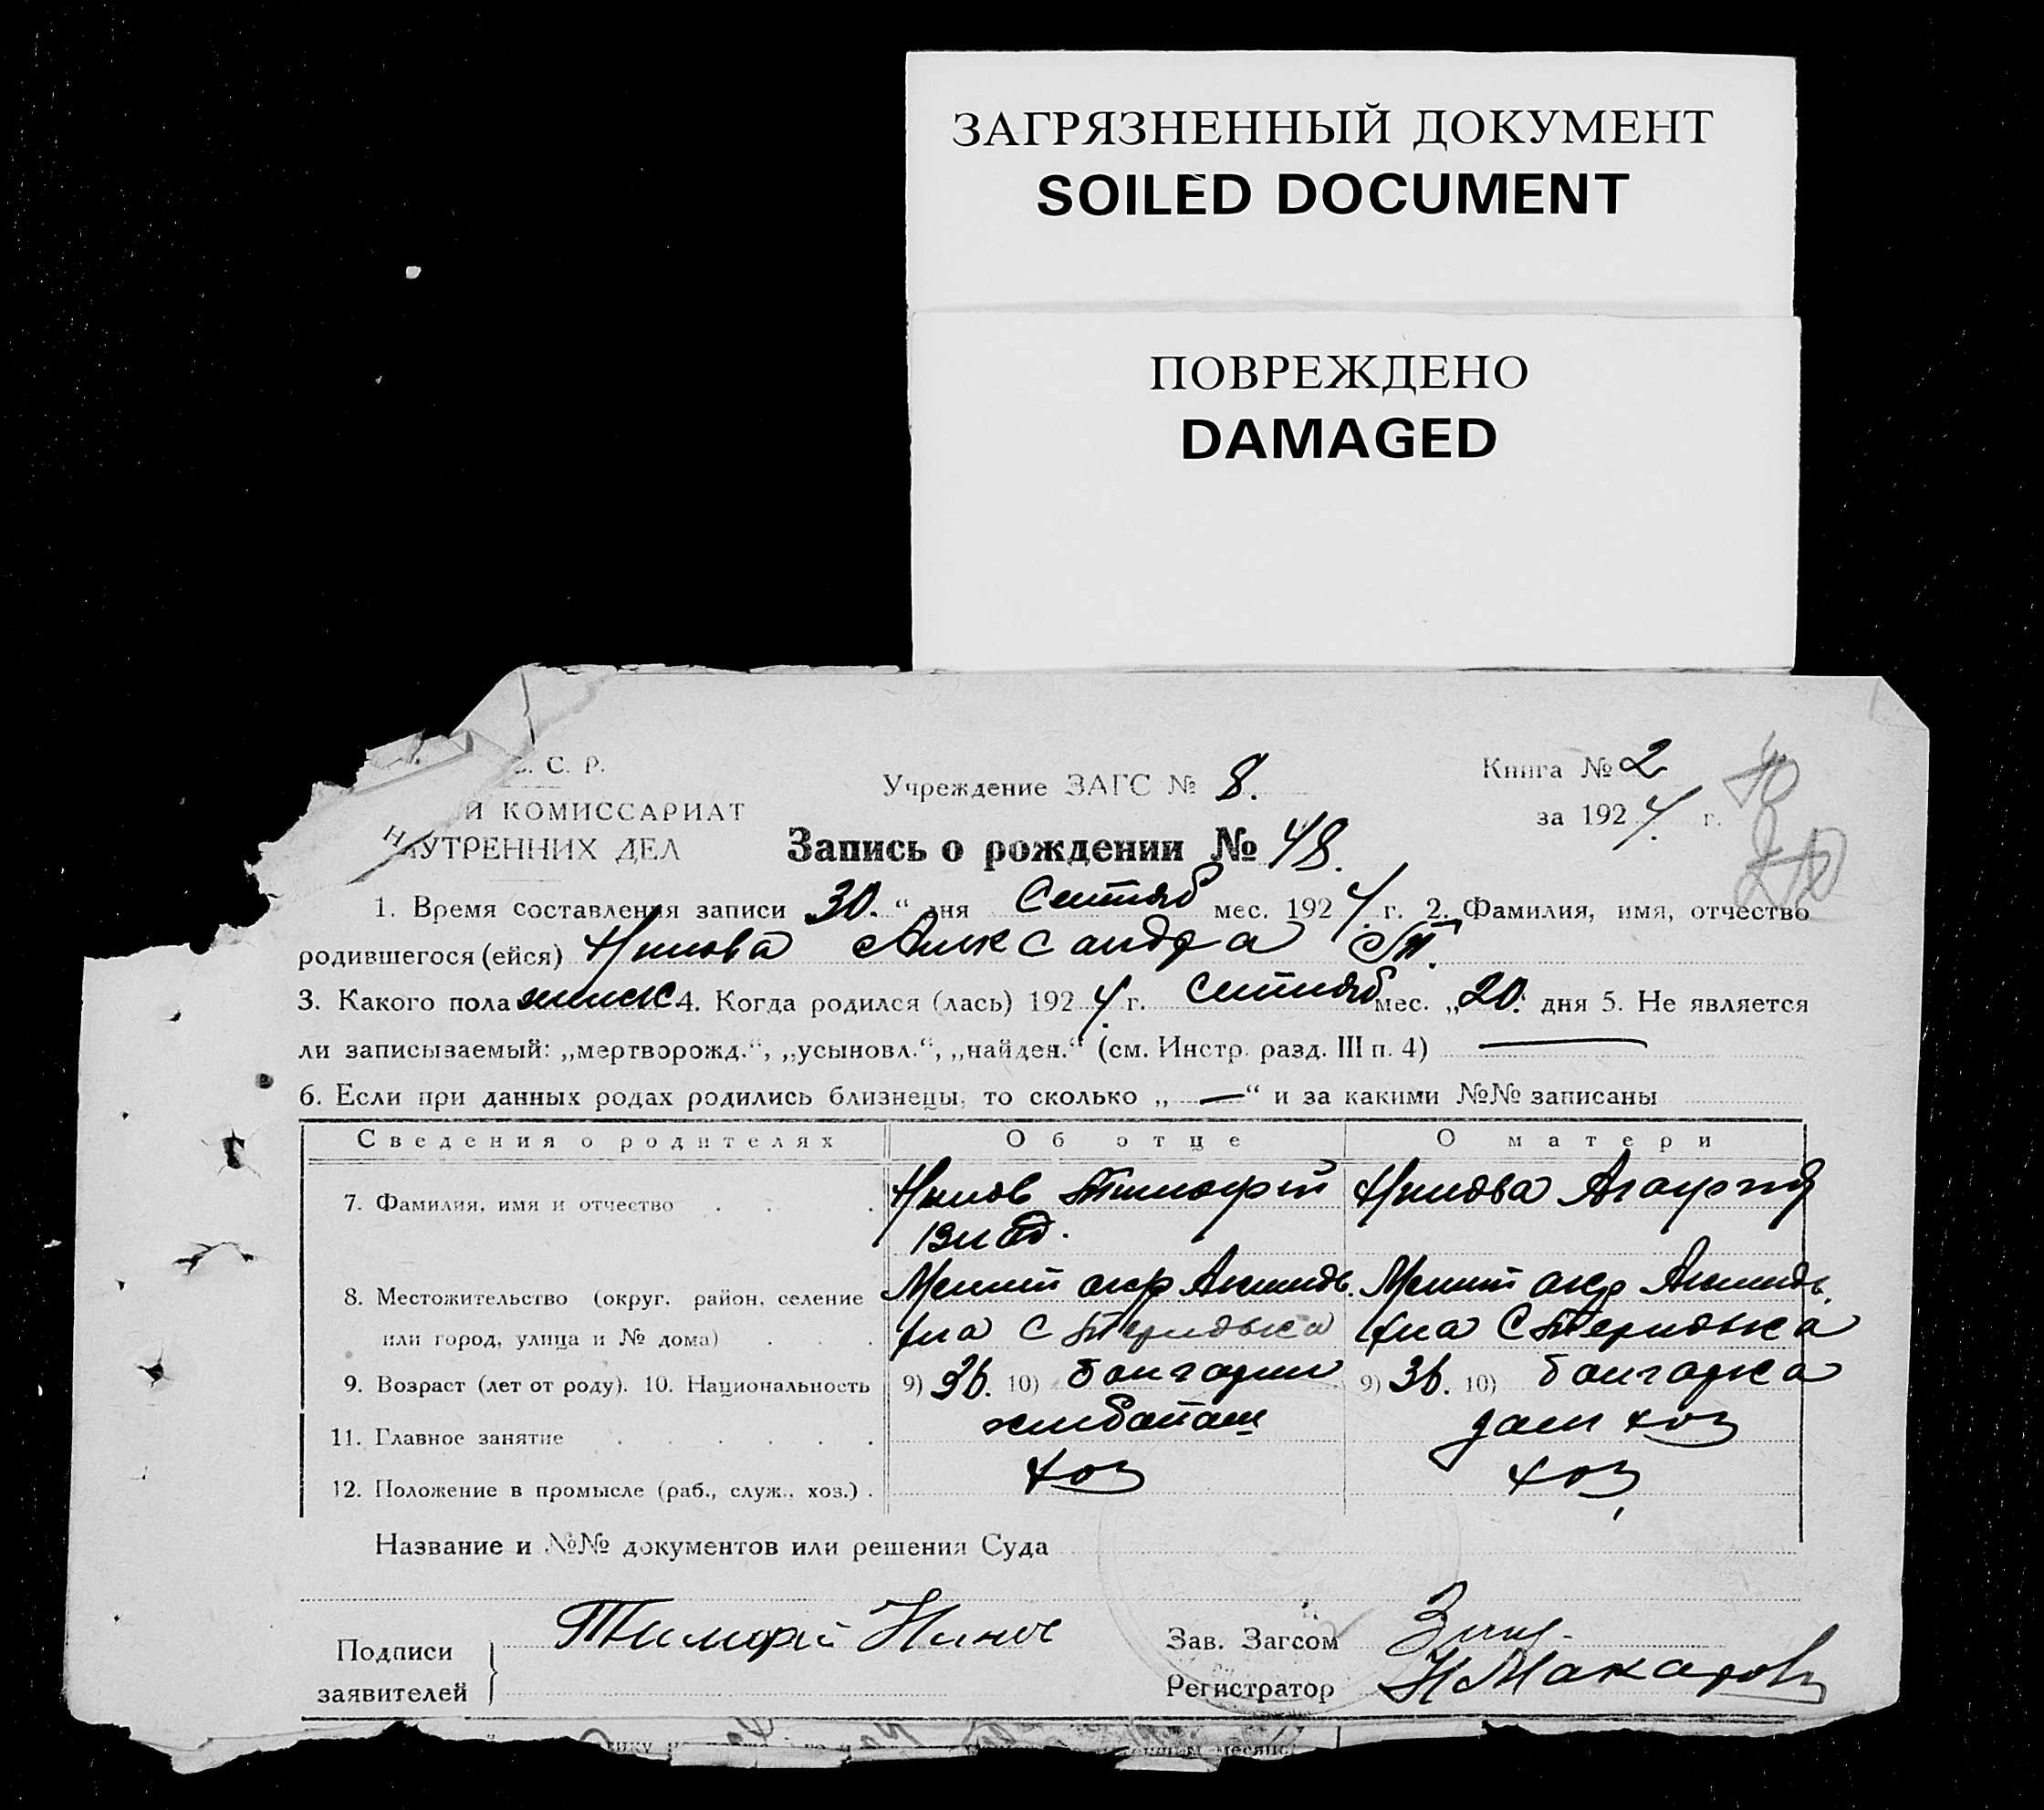 ЗАГРЯЗНЕННЫЙ ДОКУМЕНТ
SOILED DOCUMENT
ПОВРЕЖДЕНО
DAMAGED
С. Р.
Й КОМИССАРИАТ
ВНУТРЕННИХ ДЕЛ
Учреждение ЗАГС № 8.
Книга № 2
за 1924 г.
Запись о рождении № 48.
1. Время составления записи 30. “ дня Сентяб мес. 1924 г. 2. Фамилия, имя, отчество
родившегося (ейся) Нинова Александра Т.
3. Какого пола женск 4. Когда родился (лась) 1924 г. Сентяб мес. „20. дня 5. Не является
ли записываемый: „мертворожд.“, „усыновл.“, „найден.“ (см. Инстр. разд. III п. 4) —
6. Если при данных родах родились близнецы, то сколько „—“ и за какими №№ записаны
Сведения о родителях Об отце О матери
7. Фамилия, имя и отчество Нинов Тимофей Нинова
8. Местожительство (округ. район, селение Мелит окр Мелит окр
или город, улица и № дома)
9. Возраст (лет от роду). 10. Национальность 9) 36. 10) болгарин 9) 36. 10) болгарка
11. Главное занятие хлебопаш дом хоз
12. Положение в промысле (раб., служ., хоз.) хоз хоз
Название и №№ документов или решения Суда
Подписи заявителей Тимофей Нинов
Зав. Загсом
Регистратор Н Макаров